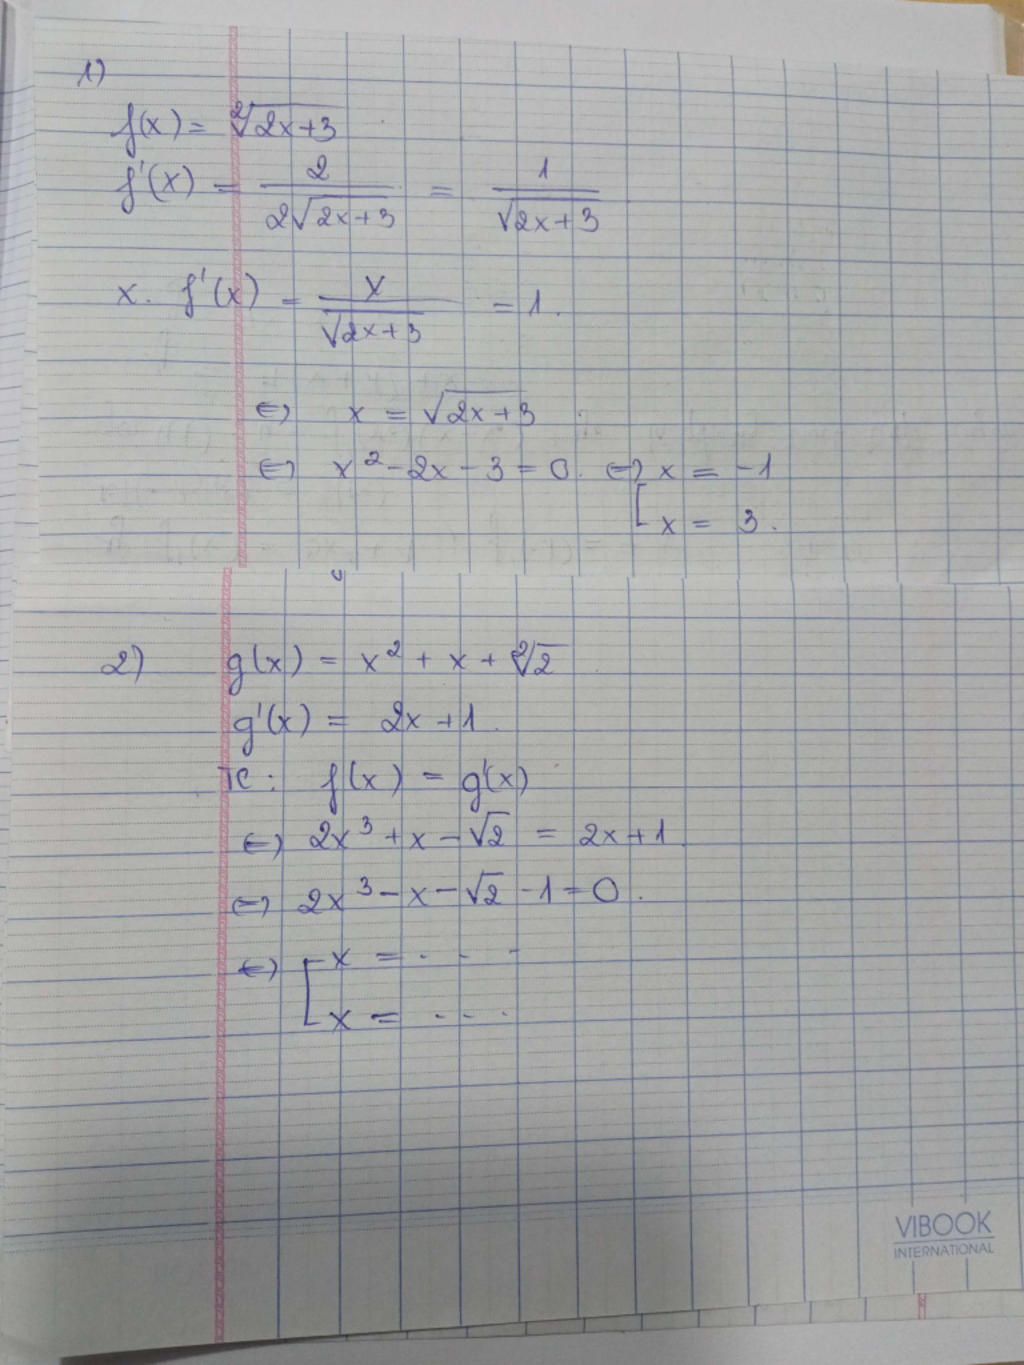 1)
f(x) = ²√2x+3
f'(x) = 2/2√2x+3 = 1/√2x+3
x. f'(x) = x/√2x+3 = 1.
⇔ x = √2x+3
⇔ x² - 2x - 3 = 0. ⇔ [ x = -1
x = 3.
2) g(x) = x² + x + ²√2
g'(x) = 2x + 1.
TC: f(x) = g'(x)
⇔ 2x³ + x - √2 = 2x + 1.
⇔ 2x³ - x - √2 - 1 = 0.
⇔ [ x = . . .
x = . . .
VIBOOK
INTERNATIONAL